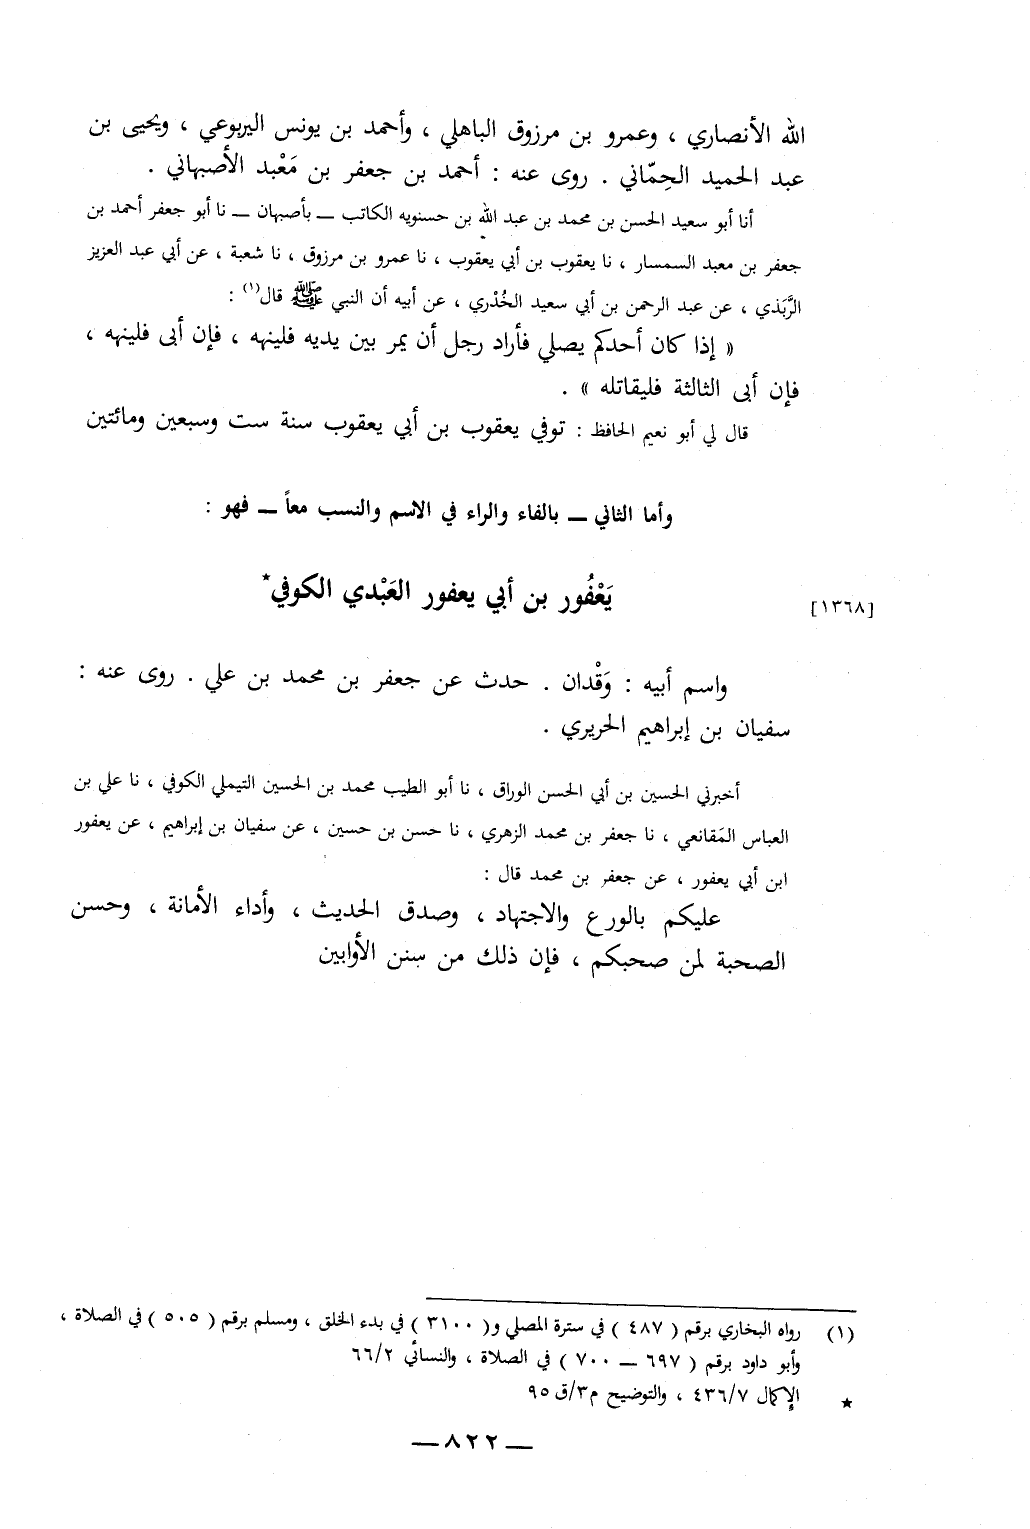 الله الأنصاري ، وعمرو بن مرزوق الباهلي ، وأحمد بن يونس اليربوعي ، ويحيى بن
عبد الحميد الحِمّاني . روى عنه : أحمد بن جعفر بن مَعْبد الأصبهاني .
أنا أبو سعيد الحسن بن محمد بن عبد الله بن حسنويه الكاتب ــ بأصبهان ــ نا أبو جعفر أحمد بن
جعفر بن معبد السمسار ، نا يعقوب بن أبي يعقوب ، نا عمرو بن مرزوق ، نا شعبة ، عن أبي عبد العزيز
الرَّبَذي ، عن عبد الرحمن بن أبي سعيد الخُدْري ، عن أبيه أن النبي ﷺ قال(١) :
« إذا كان أحدكم يصلي فأراد رجل أن يمر بين يديه فلينهه ، فإن أبى فلينهه ،
فإن أبى الثالثة فليقاتله » .
قال لي أبو نعيم الحافظ : توفي يعقوب بن أبي يعقوب سنة ست وسبعين ومائتين
وأما الثاني ــ بالفاء والراء في الاسم والنسب معاً ــ فهو :
[١٣٦٨] يَعْفُور بن أبي يعفور العَبْدي الكوفي*
واسم أبيه : وَقْدان . حدث عن جعفر بن محمد بن علي . روى عنه :
سفيان بن إبراهيم الحريري .
أخبرني الحسين بن أبي الحسن الوراق ، نا أبو الطيب محمد بن الحسين التيملي الكوفي ، نا علي بن
العباس المَقانعي ، نا جعفر بن محمد الزهري ، نا حسن بن حسين ، عن سفيان بن إبراهيم ، عن يعفور
ابن أبي يعفور ، عن جعفر بن محمد قال :
عليكم بالورع والاجتهاد ، وصدق الحديث ، وأداء الأمانة ، وحسن
الصحبة لمن صحبكم ، فإن ذلك من سنن الأوابين
(١) رواه البخاري برقم ( ٤٨٧ ) في سترة المصلي و( ٣١٠٠ ) في بدء الخلق ، ومسلم برقم ( ٥٠٥ ) في الصلاة ،
وأبو داود برقم ( ٦٩٧ ــ ٧٠٠ ) في الصلاة ، والنسائي ٦٦/٢
★ الإكمال ٤٣٦/٧ ، والتوضيح م٣/ق ٩٥
ــ ٨٢٢ ــ